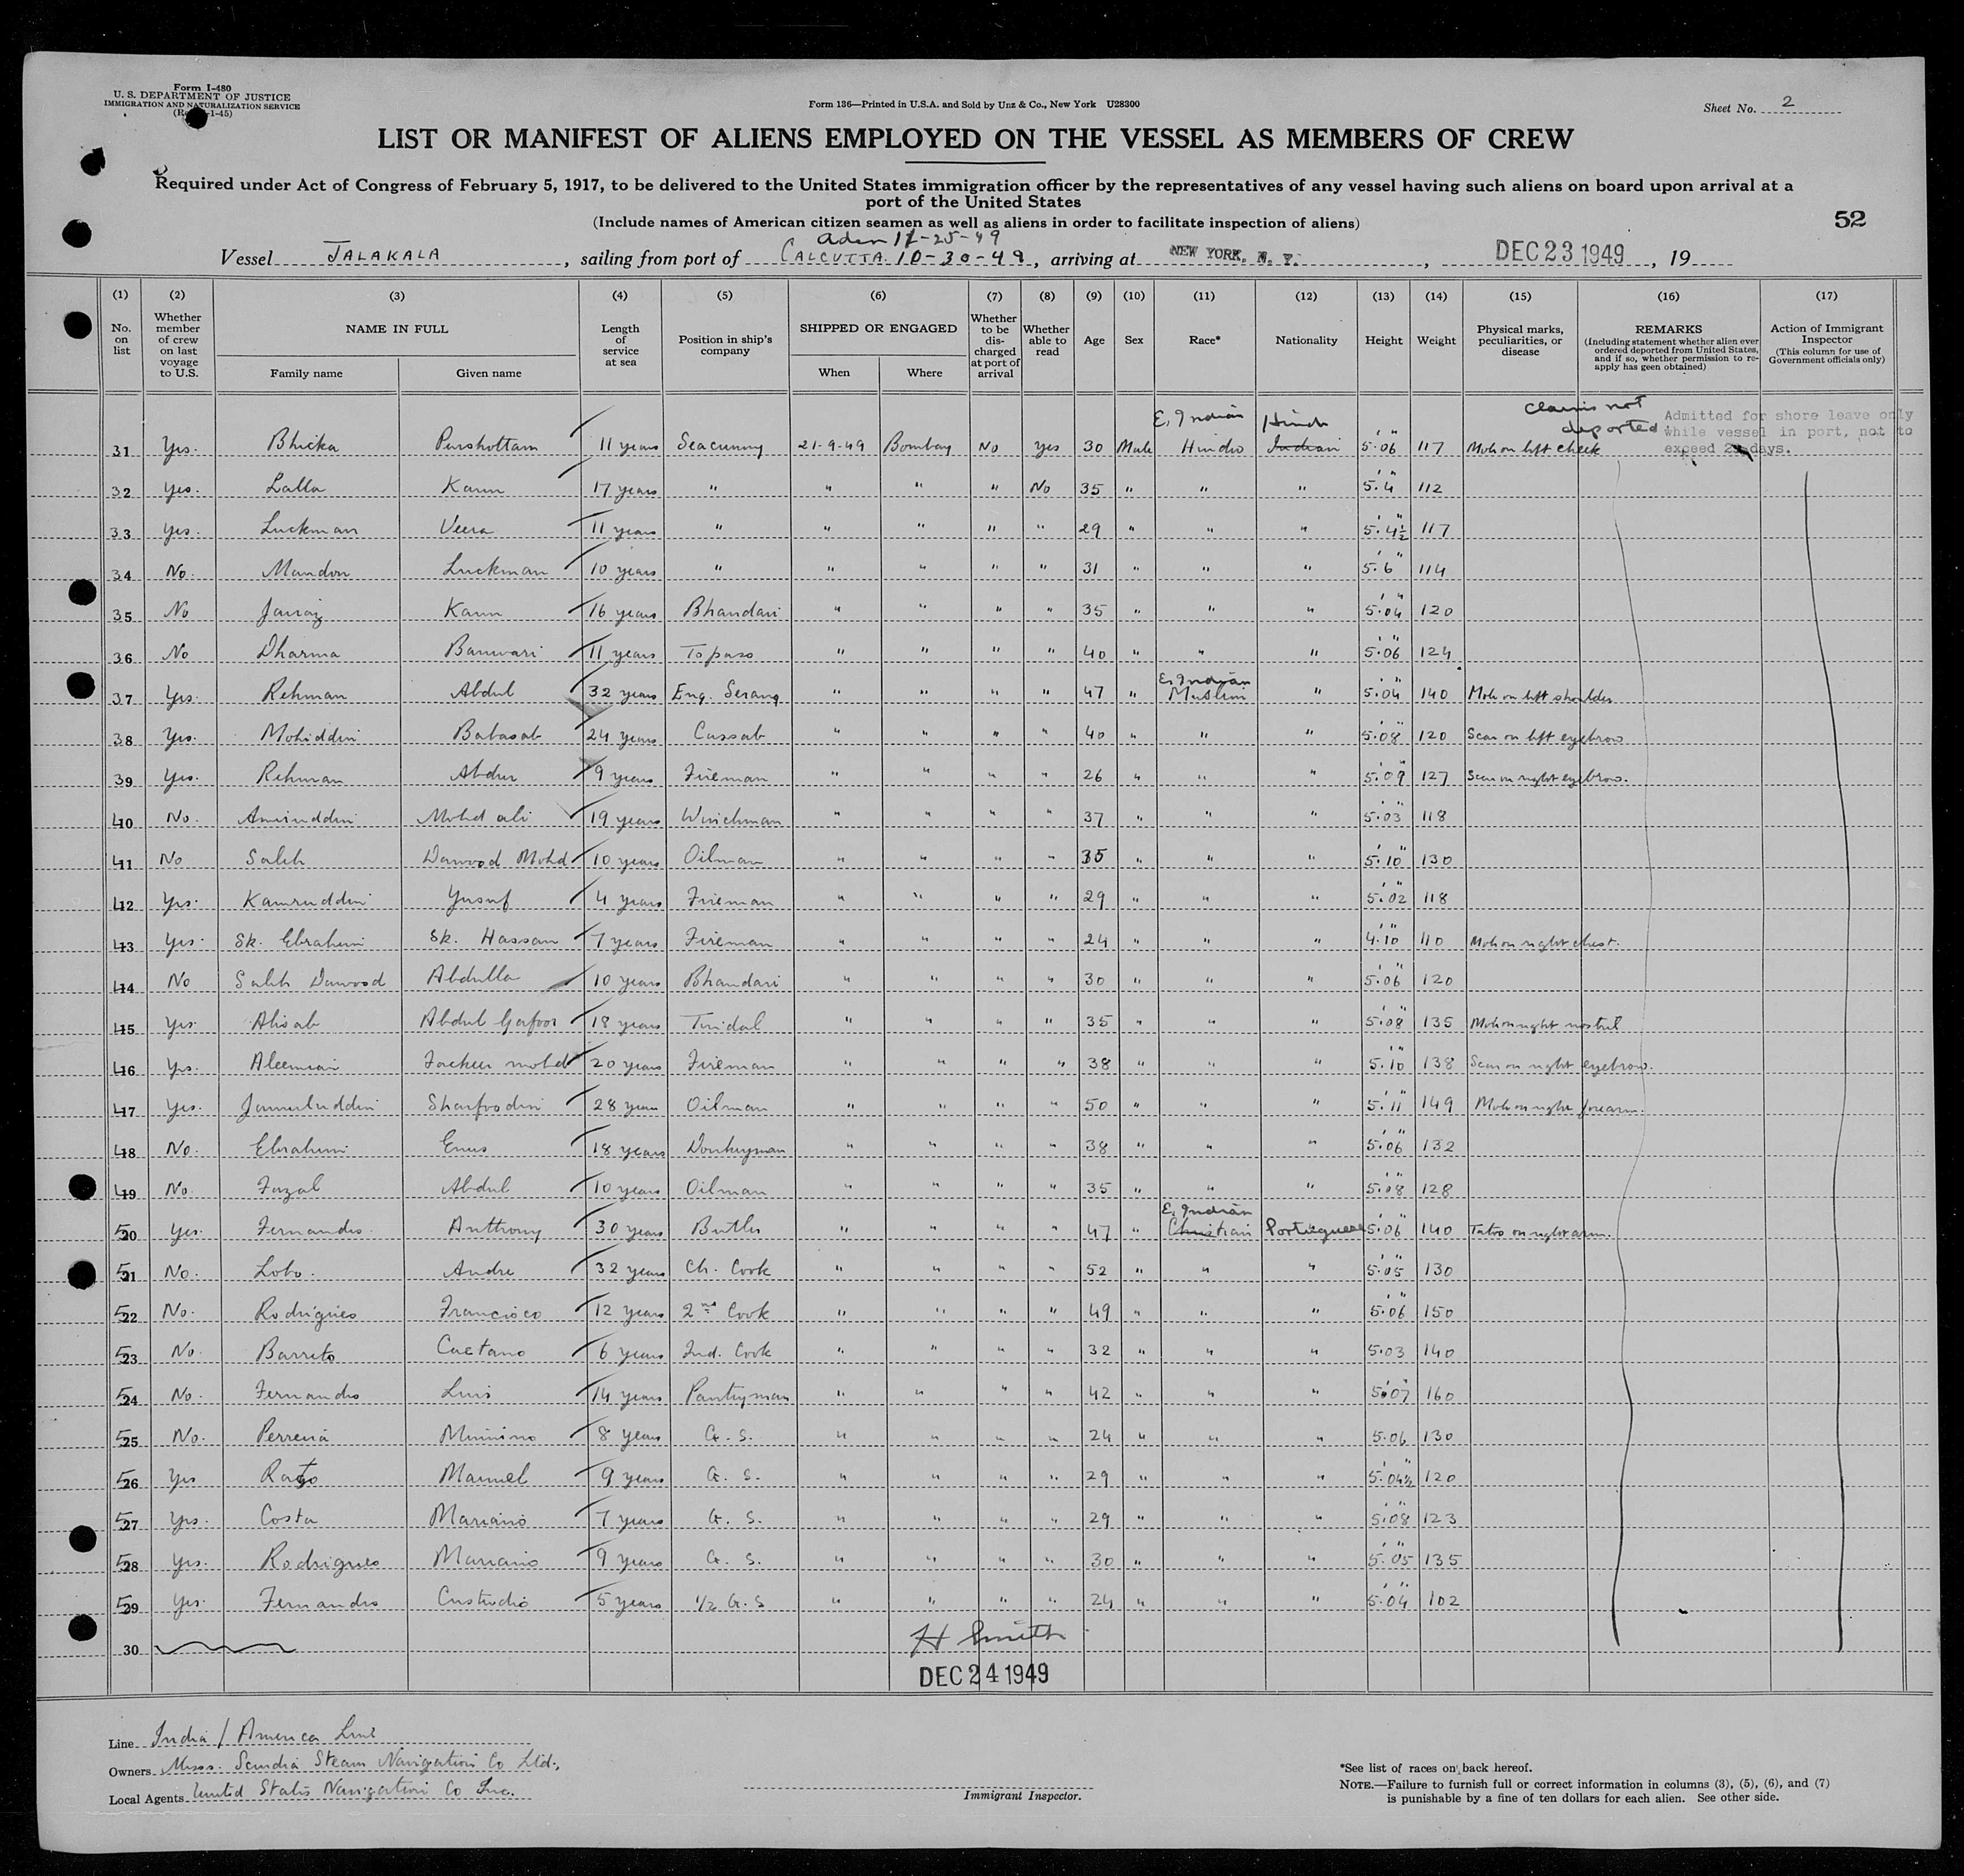 Form I-480
U. S. DEPARTMENT OF JUSTICE
IMMIGRATION AND NATURALIZATION SERVICE
Form 136—Printed in U.S.A. and Sold by Unz & Co., New York U28300
Sheet No. 2
LIST OR MANIFEST OF ALIENS EMPLOYED ON THE VESSEL AS MEMBERS OF CREW
Required under Act of Congress of February 5, 1917, to be delivered to the United States immigration officer by the representatives of any vessel having such aliens on board upon arrival at a
port of the United States
(Include names of American citizen seamen as well as aliens in order to facilitate inspection of aliens)
52
Aden 11-25-49
Vessel JALAKALA, sailing from port of CALCUTTA 10-30-49, arriving at NEW YORK, N. Y., DEC 23 1949, 19
(1) (2) (3) (4) (5) (6) (7) (8) (9) (10) (11) (12) (13) (14) (15) (16) (17)
No. on list
Whether member of crew on last voyage to U.S.
NAME IN FULL
Family name
Given name
Length of service at sea
Position in ship's company
SHIPPED OR ENGAGED
When
Where
Whether to be discharged at port of arrival
Whether able to read
Age
Sex
Race*
Nationality
Height
Weight
Physical marks, peculiarities, or disease
REMARKS
(Including statement whether alien ever ordered deported from United States, and if so, whether permission to re-apply has geen obtained)
Action of Immigrant Inspector
(This column for use of Government officials only)
E. Indian
claims not deported
Admitted for shore leave only while vessel in port, not to exceed 29 days.
31 Yes. Bhicka Purshottam 11 years Seacunny 21-9-49 Bombay No Yes 30 Male Hindu Indian 5'.06" 117 Mole on left cheek
32 Yes. Lalla Kann 17 years " " " " No 35 " " " 5'.4" 112
33 Yes. Luckman Veera 11 years " " " " " 29 " " " 5'.4½" 117
34 No. Mandon Luckman 10 years " " " " " 31 " " " 5'.6" 114
35 No Kann 16 years Bhandari " " " " 35 " " " 5'.04" 120
36 No Dharma Banwari 11 years Topass " " " " 40 " " " 5'.06" 124
E. Indian
37 Yes. Rehman Abdul 32 years Eng. Serang " " " " 47 " Muslim " 5'.04" 140 Mole on left shoulder
38 Yes. Mohiddin Babasab 24 years Cassab " " " " 40 " " " 5'.08" 120 Scar on left eyebrow
39 Yes. Rehman Abdur 9 years Fireman " " " " 26 " " " 5'.09" 127 Scar on right eyebrow.
40 No. Amiruddin Mohd ali 19 years Winchman " " " " 37 " " " 5'.03" 118
41 No Saleh Dawood Mohd 10 years Oilman " " " " 35 " " " 5'.10" 130
42 Yes. Kamruddin Yusuf 4 years Fireman " " " " 29 " " " 5'.02" 118
43 Yes. Sk. Ebrahim Sk. Hassan 7 years Fireman " " " " 24 " " " 4'.10" 110 Mole on right chest.
44 No Saleh Dawood Abdulla 10 years Bhandari " " " " 30 " " " 5'.06" 120
45 Yes. Alisab Abdul Gafoor 18 years Tindal " " " " 35 " " " 5'.08" 135 Mole on right nostril
46 Yes. Aleemian Mohd 20 years Fireman " " " " 38 " " " 5'.10" 138 Scar on right eyebrow.
47 Yes. Jamaluddin Sharfoodin 28 years Oilman " " " " 50 " " " 5'.11" 149 Mole on right forearm.
48 No. Ebrahim Enus 18 years Donkeyman " " " " 38 " " " 5'.06" 132
49 No. Fazal Abdul 10 years Oilman " " " " 35 " " " 5'.08" 128
E. Indian
50 Yes. Fernandes Anthony 30 years Butler " " " " 47 " Christian Portuguese 5'.06" 140 Tatoo on right arm.
51 No. Lobo. Andre 32 years Ch. Cook " " " " 52 " " " 5'.05" 130
52 No. Rodrigues Francisco 12 years 2nd Cook " " " " 49 " " " 5'.06" 150
53 No. Barreto Caetano 6 years Ind. Cook " " " " 32 " " " 5.03 140
54 No. Fernandes Luis 14 years Pantryman " " " " 42 " " " 5'.07" 160
55 No. Perreira 8 years G. S. " " " " 24 " " " 5.06 130
56 Yes Rato Manuel 9 years G. S. " " " " 29 " " " 5'.04½" 120
57 Yes. Costa Mariano 7 years G. S. " " " " 29 " " " 5'.08" 123
58 Yes. Rodrigues Mariano 9 years G. S. " " " " 30 " " " 5'.05" 135
59 Yes. Fernandes Custodio 5 years 1/2 G. S " " " " 24 " " " 5'.04" 102
30
H Smith
DEC 24 1949
Line India / America Line
Owners Messrs. Scindia Steam Navigation Co Ltd.,
Local Agents United States Navigation Co Inc.
Immigrant Inspector.
*See list of races on back hereof.
NOTE.—Failure to furnish full or correct information in columns (3), (5), (6), and (7)
is punishable by a fine of ten dollars for each alien. See other side.